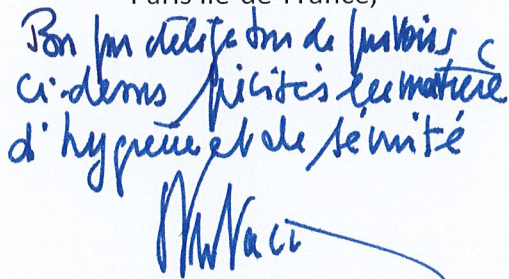 Paris Île-de-France,
Bon pour délégation de pouvoirs
ci-dessus précisés en matière
d'hygiène et de sécurité